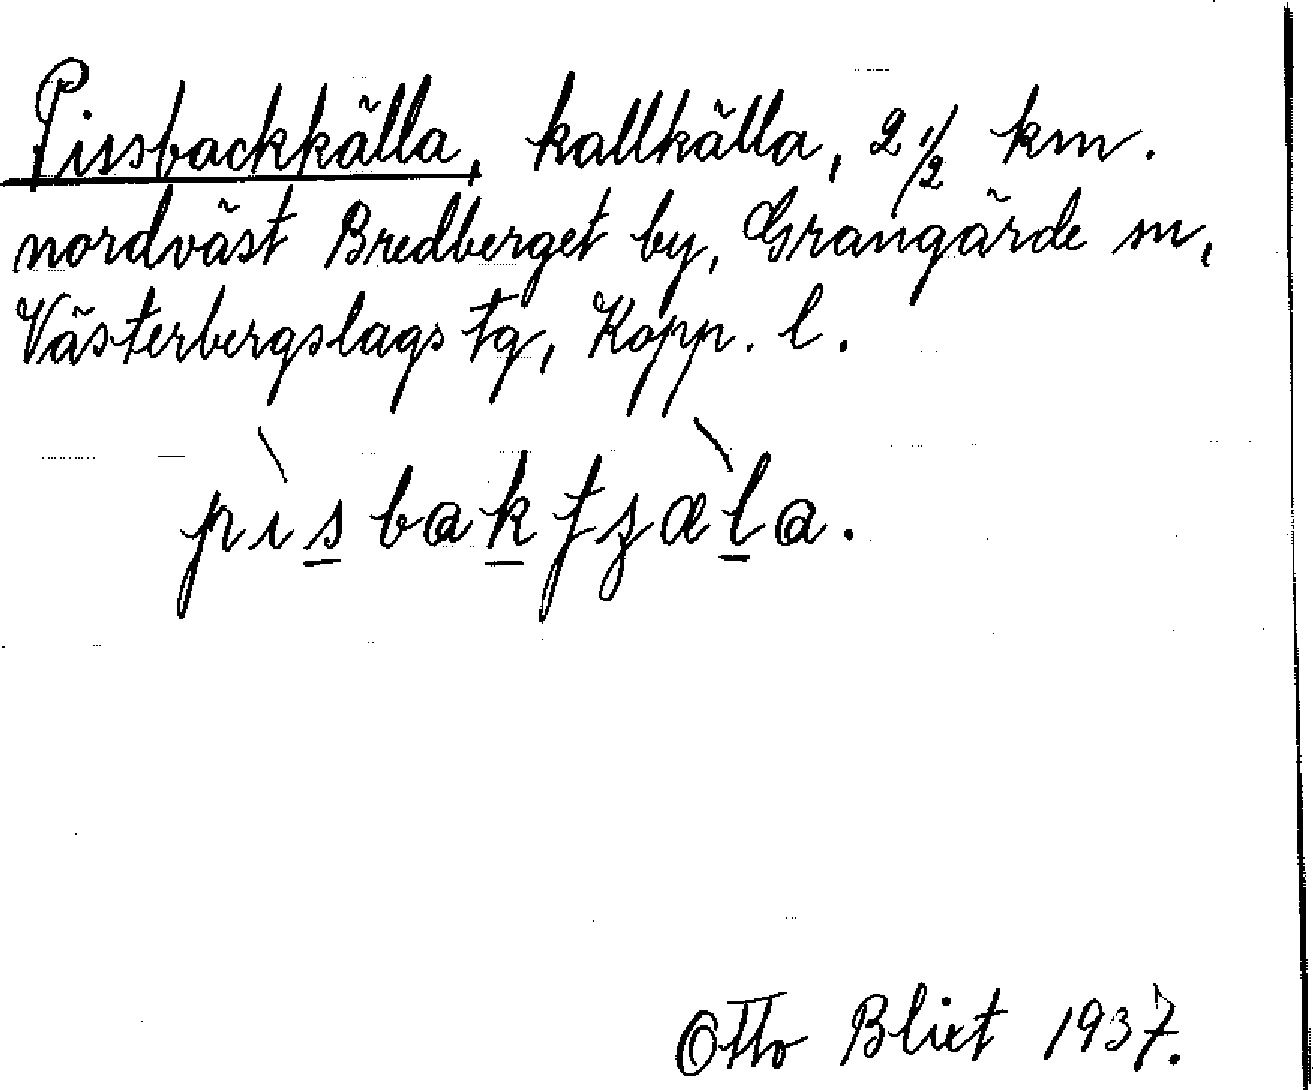 Pissbackkälla, kallkälla, 2 1/2 km.
nordväst Bredberget by, Grangärde sn,
Västerbergslags tg, Kopp. l.
pìsbaktʒæ̀la.
Otto Blixt 1937.